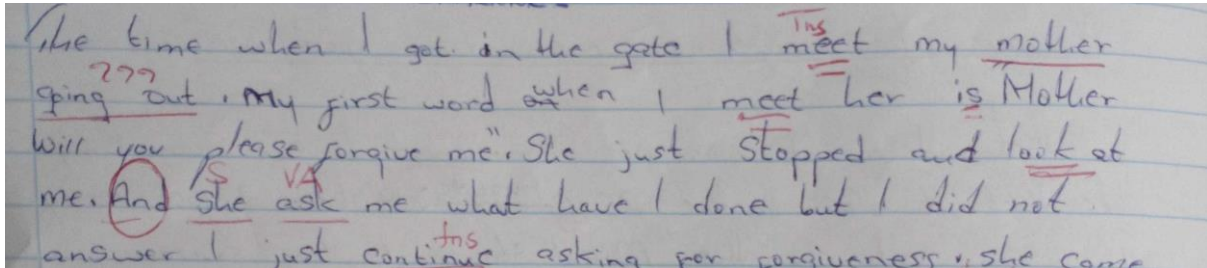 Tns
The time when I got in the gate I meet my mother
???
going out. My first word when I meet her is Mother
Will you please forgive me". She just stopped and look at
S VA
me. And she ask me what have I done but I did not
tns
answer I just continue asking for forgiveness. she come